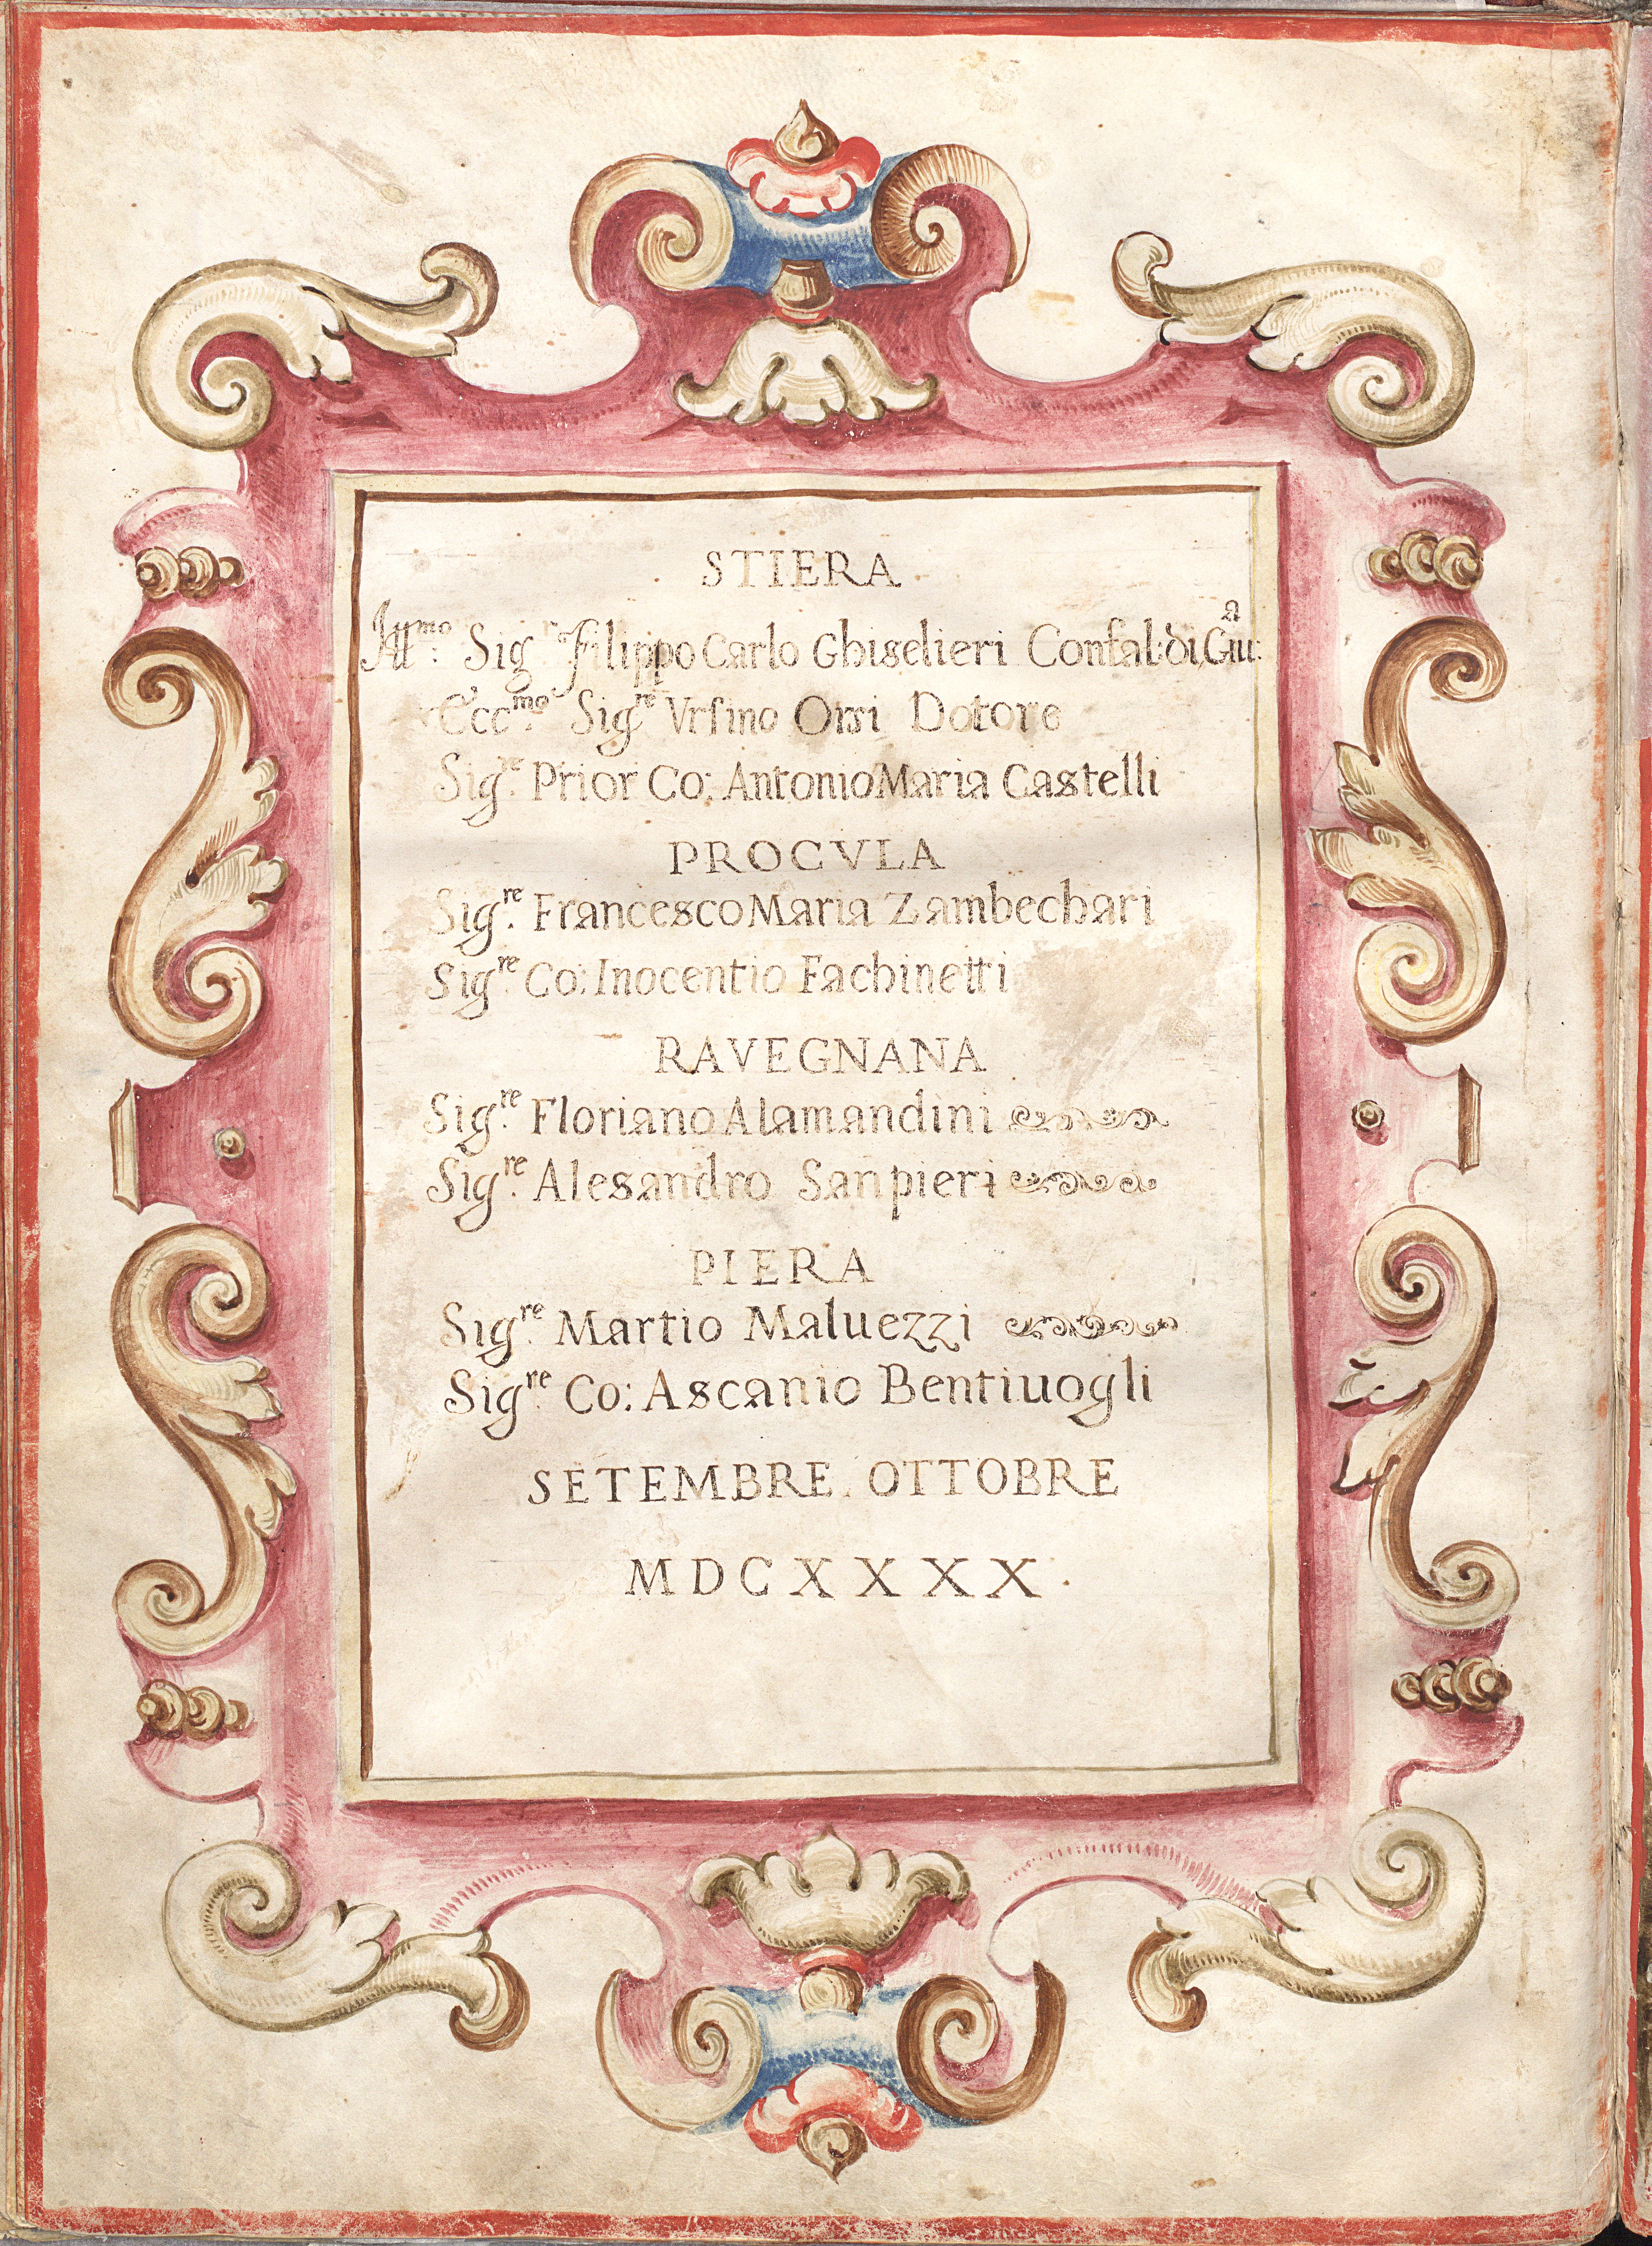 STIERA
Ill.mo Sig.r Filippo Carlo Ghiselieri Confal: di Giu:a
Ecc.mo Sig.re Vrsino Orsi Dotore
Sig.re Prior Co: Antonio Maria Castelli
PROCVLA
Sig.re Francesco Maria Zambechari
Sig.re Co: Inocentio Fachinetti
RAVEGNANA
Sig.re Floriano Alamandini
Sig.re Alesandro Sanpieri
PIERA
Sig.re Martio Maluezzi
Sig.re Co: Ascanio Bentiuogli
SETEMBRE. OTTOBRE
MDCXXXX.